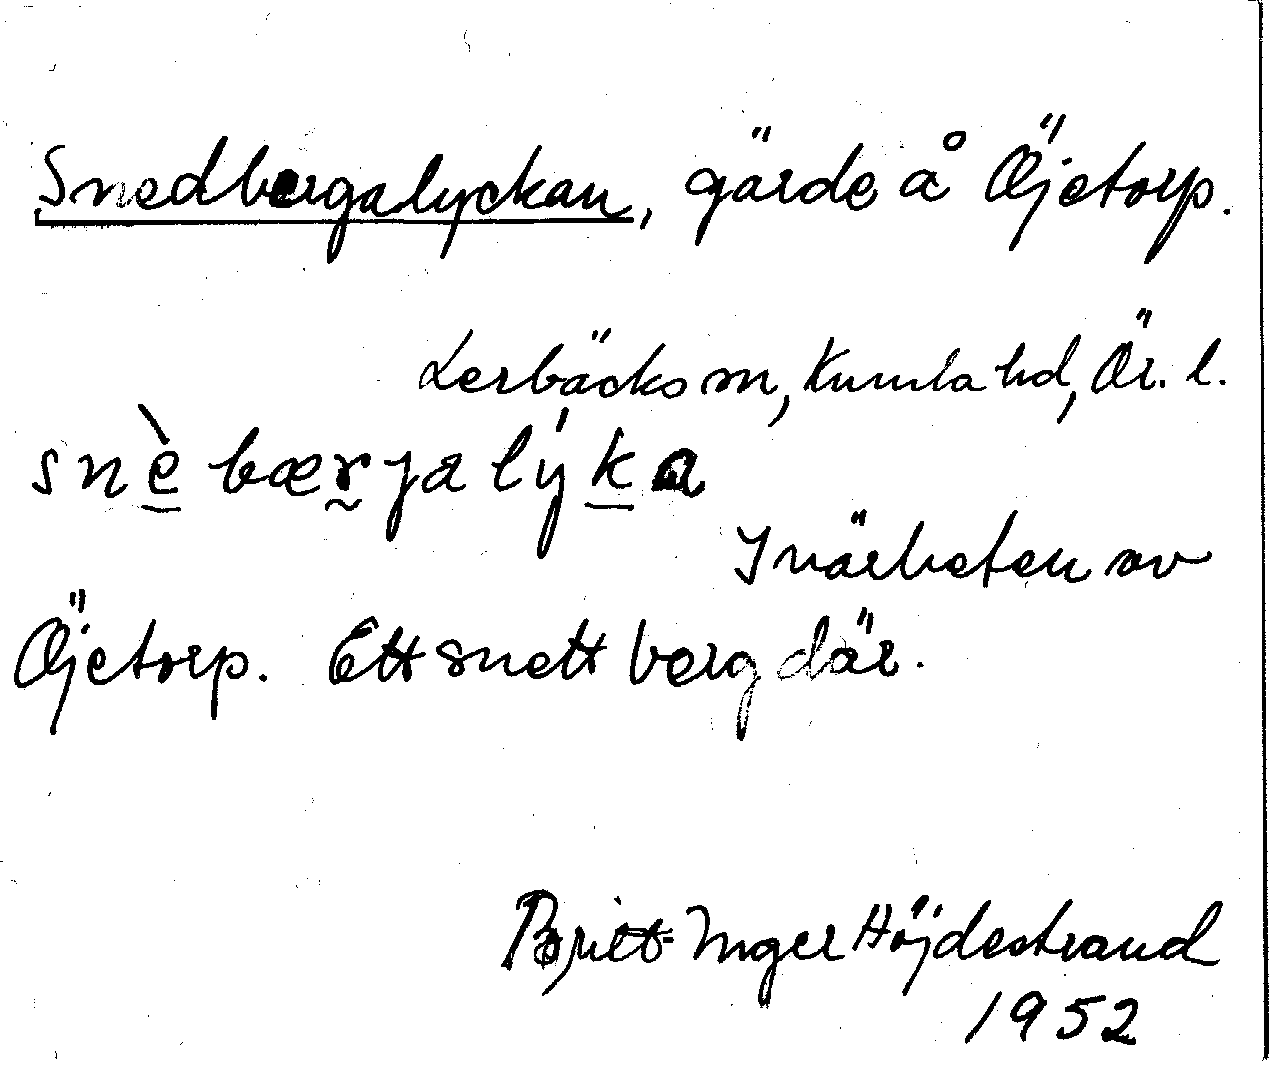 Snedbergalyckan, gärde å Öjetorp.
Lerbäcks sn, Kumla hd, Ör. l.
snè̱bær̰jalýḵa
I närheten av
Öjetorp. Ett snett berg där.
Britt-Inger Höjdestrand
1952